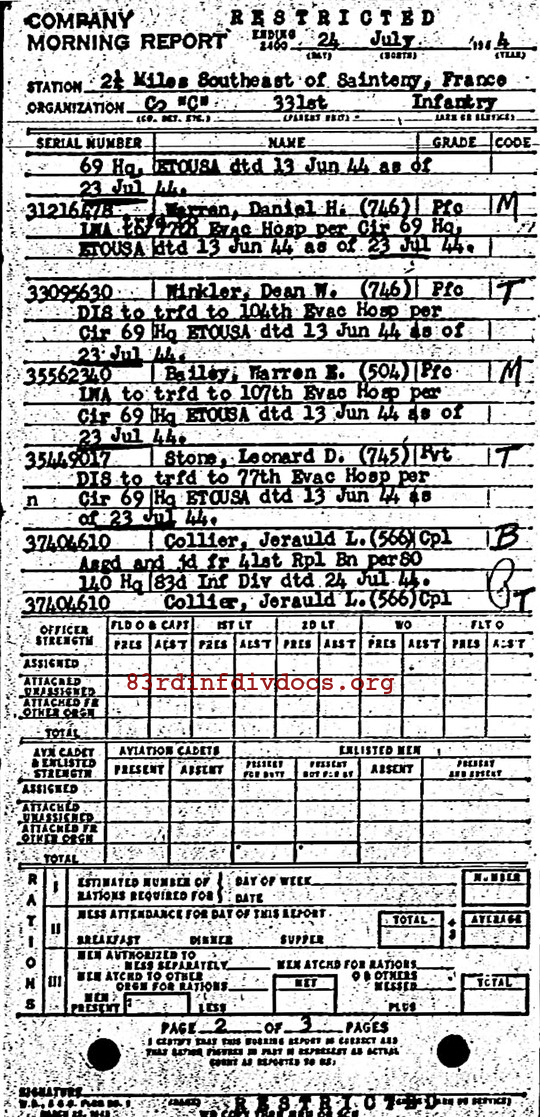 COMPANY RESTRICTED
MORNING REPORT ENDING 2400 24 July 1944
(DAY) (MONTH) (YEAR)
STATION 2½ Miles Southeast of Sainteny, France
ORGANIZATION Co "C" 331st Infantry
(CO. DET. ETC.) (PARENT UNIT) (ARM OR SERVICE)
SERIAL NUMBER NAME GRADE CODE
69 Hq, ETOUSA dtd 13 Jun 44 as of
23 Jul 44.
31216478 Warren, Daniel H. (746) Pfc M
LWA to 77th Evac Hosp per Cir 69 Hq,
ETOUSA dtd 13 Jun 44 as of 23 Jul 44.
33095630 Winkler, Dean W. (746) Pfc T
DIS to trfd to 104th Evac Hosp per
Cir 69 Hq ETOUSA dtd 13 Jun 44 as of
23 Jul 44.
35562340 Bailey, Warren E. (504) Pfc M
LWA to trfd to 107th Evac Hosp per
Cir 69 Hq ETOUSA dtd 13 Jun 44 as of
23 Jul 44.
35449017 Stone, Leonard D. (745) Pvt T
DIS to trfd to 77th Evac Hosp per
n Cir 69 Hq ETOUSA dtd 13 Jun 44 as
of 23 Jul 44.
37404610 Collier, Jerauld L.(566) Cpl B
Asgd and jd fr 41st Rpl Bn per SO
140 Hq 83d Inf Div dtd 24 Jul 44.
37404610 Collier, Jerauld L.(566) Cpl T
OFFICER STRENGTH FLD O & CAPT 1ST LT 2D LT WO FLT O
PRES ABS'T PRES ABS'T PRES ABS'T PRES ABS'T PRES ABS'T
ASSIGNED
ATTACHED UNASSIGNED
83rdinfdivdocs.org
ATTACHED FR OTHER ORGN
TOTAL
AVN CADET & ENLISTED STRENGTH AVIATION CADETS ENLISTED MEN
PRESENT ABSENT PRESENT FOR DUTY PRESENT NOT FOR DY ABSENT PRESENT AND ABSENT
ASSIGNED
ATTACHED UNASSIGNED
ATTACHED FR OTHER ORGN
TOTAL
RATIONS
I ESTIMATED NUMBER OF RATIONS REQUIRED FOR DAY OF WEEK DATE NUMBER
II MESS ATTENDANCE FOR DAY OF THIS REPORT TOTAL ÷ 3 AVERAGE
BREAKFAST DINNER SUPPER
III MEN AUTHORIZED TO MESS SEPARATELY MEN ATCHD FOR RATIONS
MEN ATCHD TO OTHER ORGN FOR RATIONS NET OTHERS MESSED TOTAL
MEN PRESENT LESS PLUS
PAGE 2 OF 3 PAGES
I CERTIFY THAT THIS MORNING REPORT IS CORRECT AND
THAT RATION FIGURES IN PART III REPRESENT AN ACTUAL
COUNT AS REPORTED TO ME:
SIGNATURE
RESTRICTED